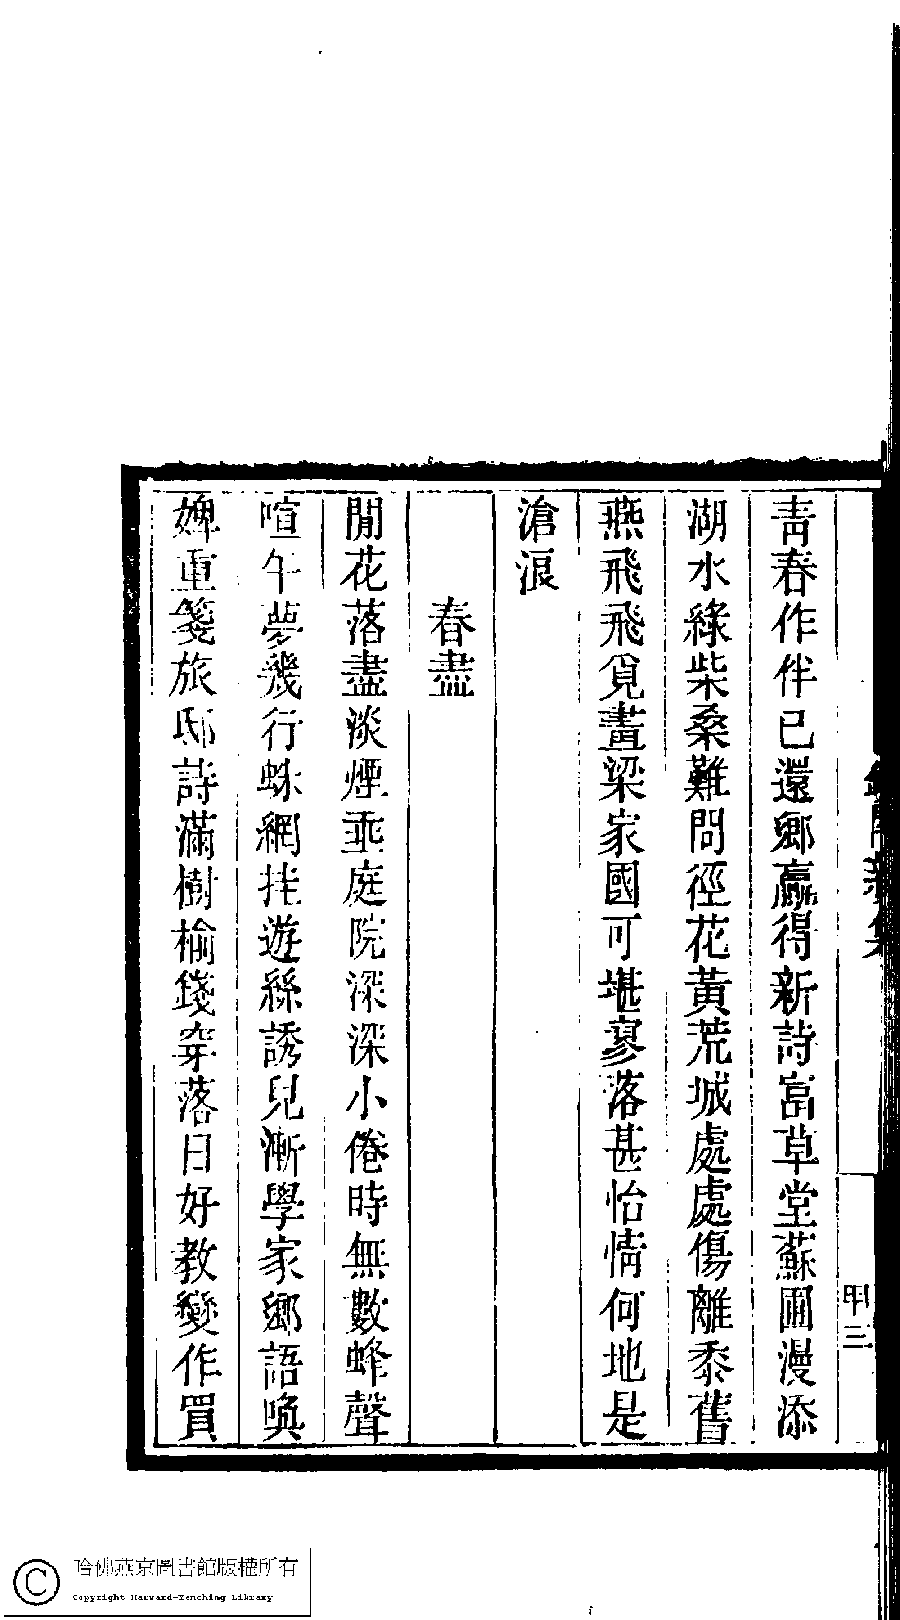 青春作伴已還鄉贏得新詩富草堂蘇圃漫添
湖水綠柴桑難問徑花黃荒城處處傷離黍舊
燕飛飛覓畫梁家國可堪寥落甚怡情何地是
滄浪
春盡
閒花落盡淡煙垂庭院深深小倦時無數蜂聲
喧午夢幾行蛛網挂遊絲誘兒漸學家鄉語喚
婢重箋旅邸詩滿樹榆錢穿落日好教變作買
甲三
哈佛燕京圖書館版權所有
Copyright Harvard-Yenching Library